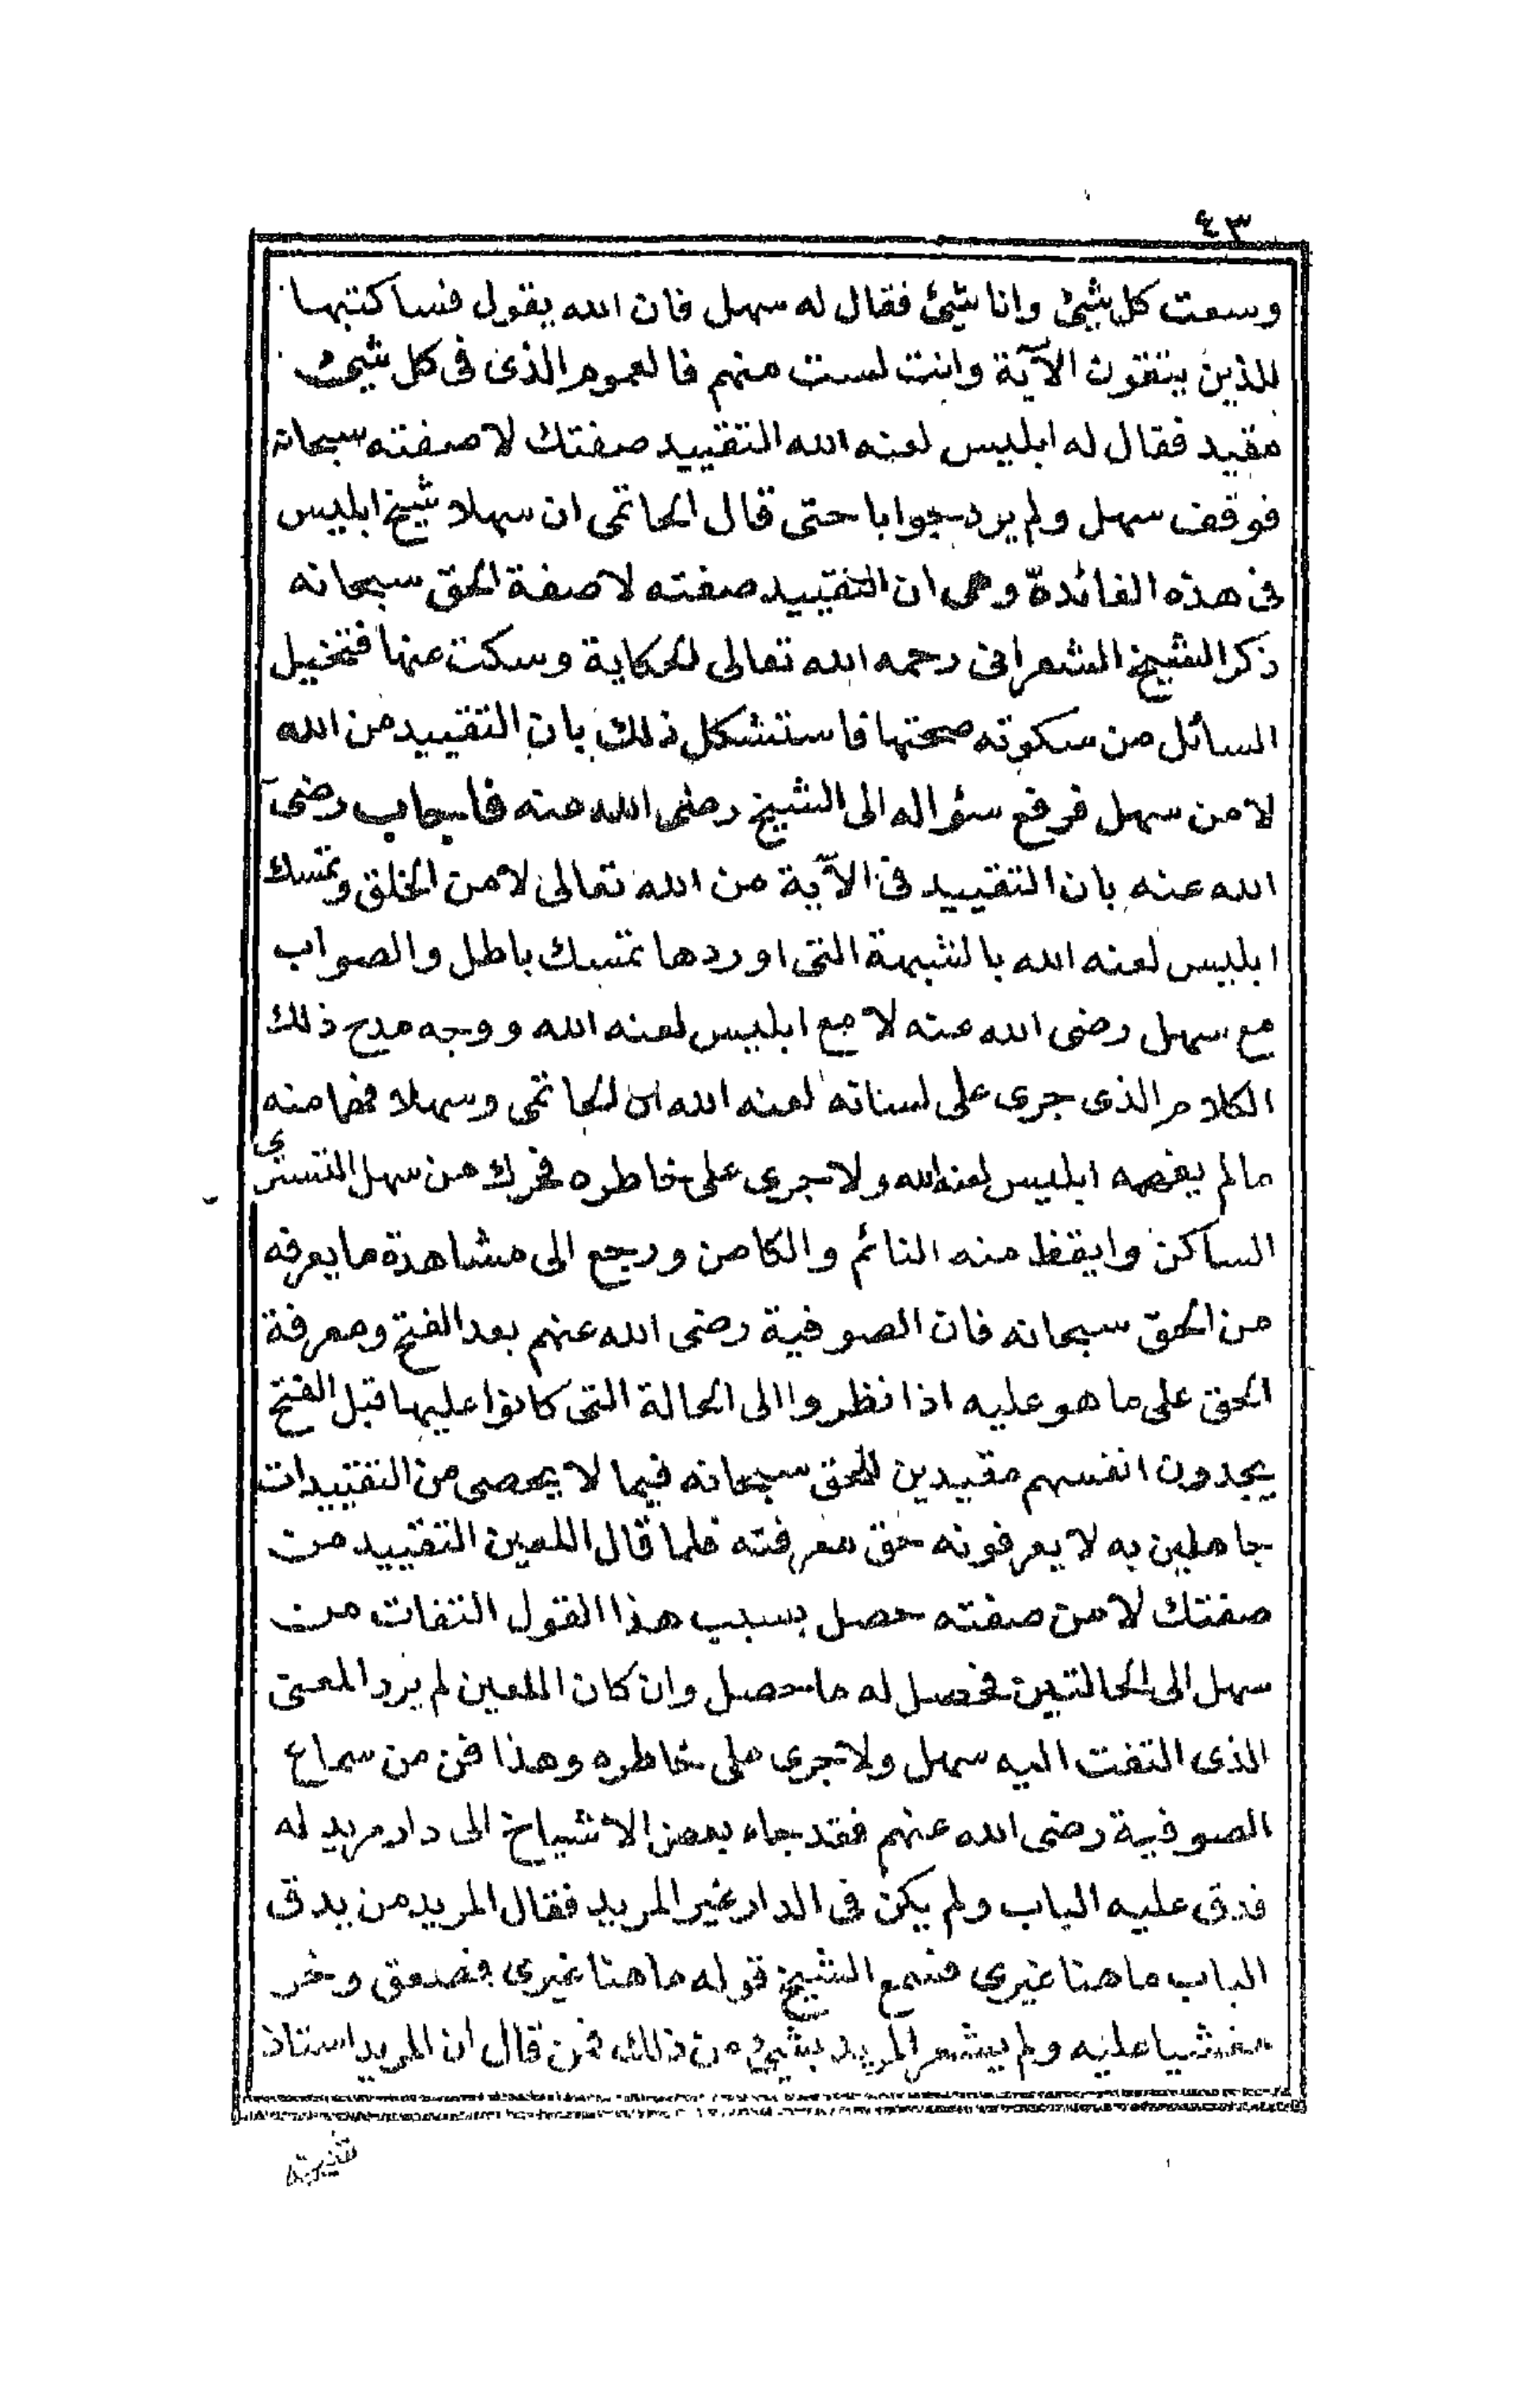 ٤٣
وسعت كل شيئ وانا شيئ فقال له سهل فان الله يقول فسأكتبها
للذين يتقون الآية وانت لست منهم فالعموم الذى فى كل شيئ
مقيد فقال له ابليس لعنه الله التقييد صفتك لا صفته سبحانه
فوقف سهل ولم يرد جوابا حتى قال الحاتمى ان سهلا شيخ ابليس
فى هذه الفائدة وهى ان التقييد صفته لا صفة الحق سبحانه
ذكر الشيخ الشعرانى رحمه الله تعالى الحكاية وسكت عنها فتخيل
السائل من سكوته صحتها فاستشكل ذلك بان التقييد من الله
لا من سهل فرفع سؤاله الى الشيخ رضى الله عنه فاجاب رضى
الله عنه بان التقييد فى الآية من الله تعالى لا من الخلق وتمسك
ابليس لعنه الله بالشبهة التى اوردها تمسك باطل والصواب
مع سهل رضى الله عنه لا مع ابليس لعنه الله ووجه مدح ذلك
الكلام الذى جرى على لسانه لعنه الله ان الحاتمى وسهلا فهما منه
مالم يفهمه ابليس لعنه الله ولا جرى على خاطره فحرك من سهل التسترى
الساكن وايقظ منه النائم والكامن ورجع الى مشاهدة ما يعرفه
من الحق سبحانه فان الصوفية رضى الله عنهم بعد الفتح ومعرفة
الحق على ما هو عليه اذا نظروا الى الحالة التى كانوا عليها قبل الفتح
يجدون انفسهم مقيدين للحق سبحانه فيما لا يحصى من التقييدات
جاهلين به لا يعرفونه حق معرفته فلما قال اللعين التقييد من
صفتك لا من صفته حصل بسبب هذا القول التفات من
سهل الى الحالتين فحصل له ما حصل وان كان اللعين لم يرد المعنى
الذى التفت اليه سهل ولا جرى على خاطره وهذا فن من سماع
الصوفية رضى الله عنهم فقد جاء بعض الاشياخ الى دار مريد له
فدق عليه الباب ولم يكن فى الدار غير المريد فقال المريد من يدق
الباب ما هنا غيرى فسمع الشيخ قوله ما هنا غيرى فصعق وخر
مغشيا عليه ولم يشعر المريد بشيئ من ذلك فمن قال ان المريد استاذ